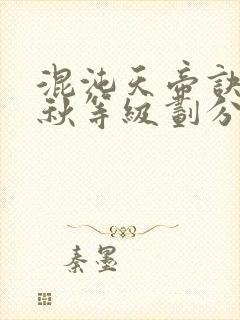 混沌天帝訣
秋等級劃分
秦墨